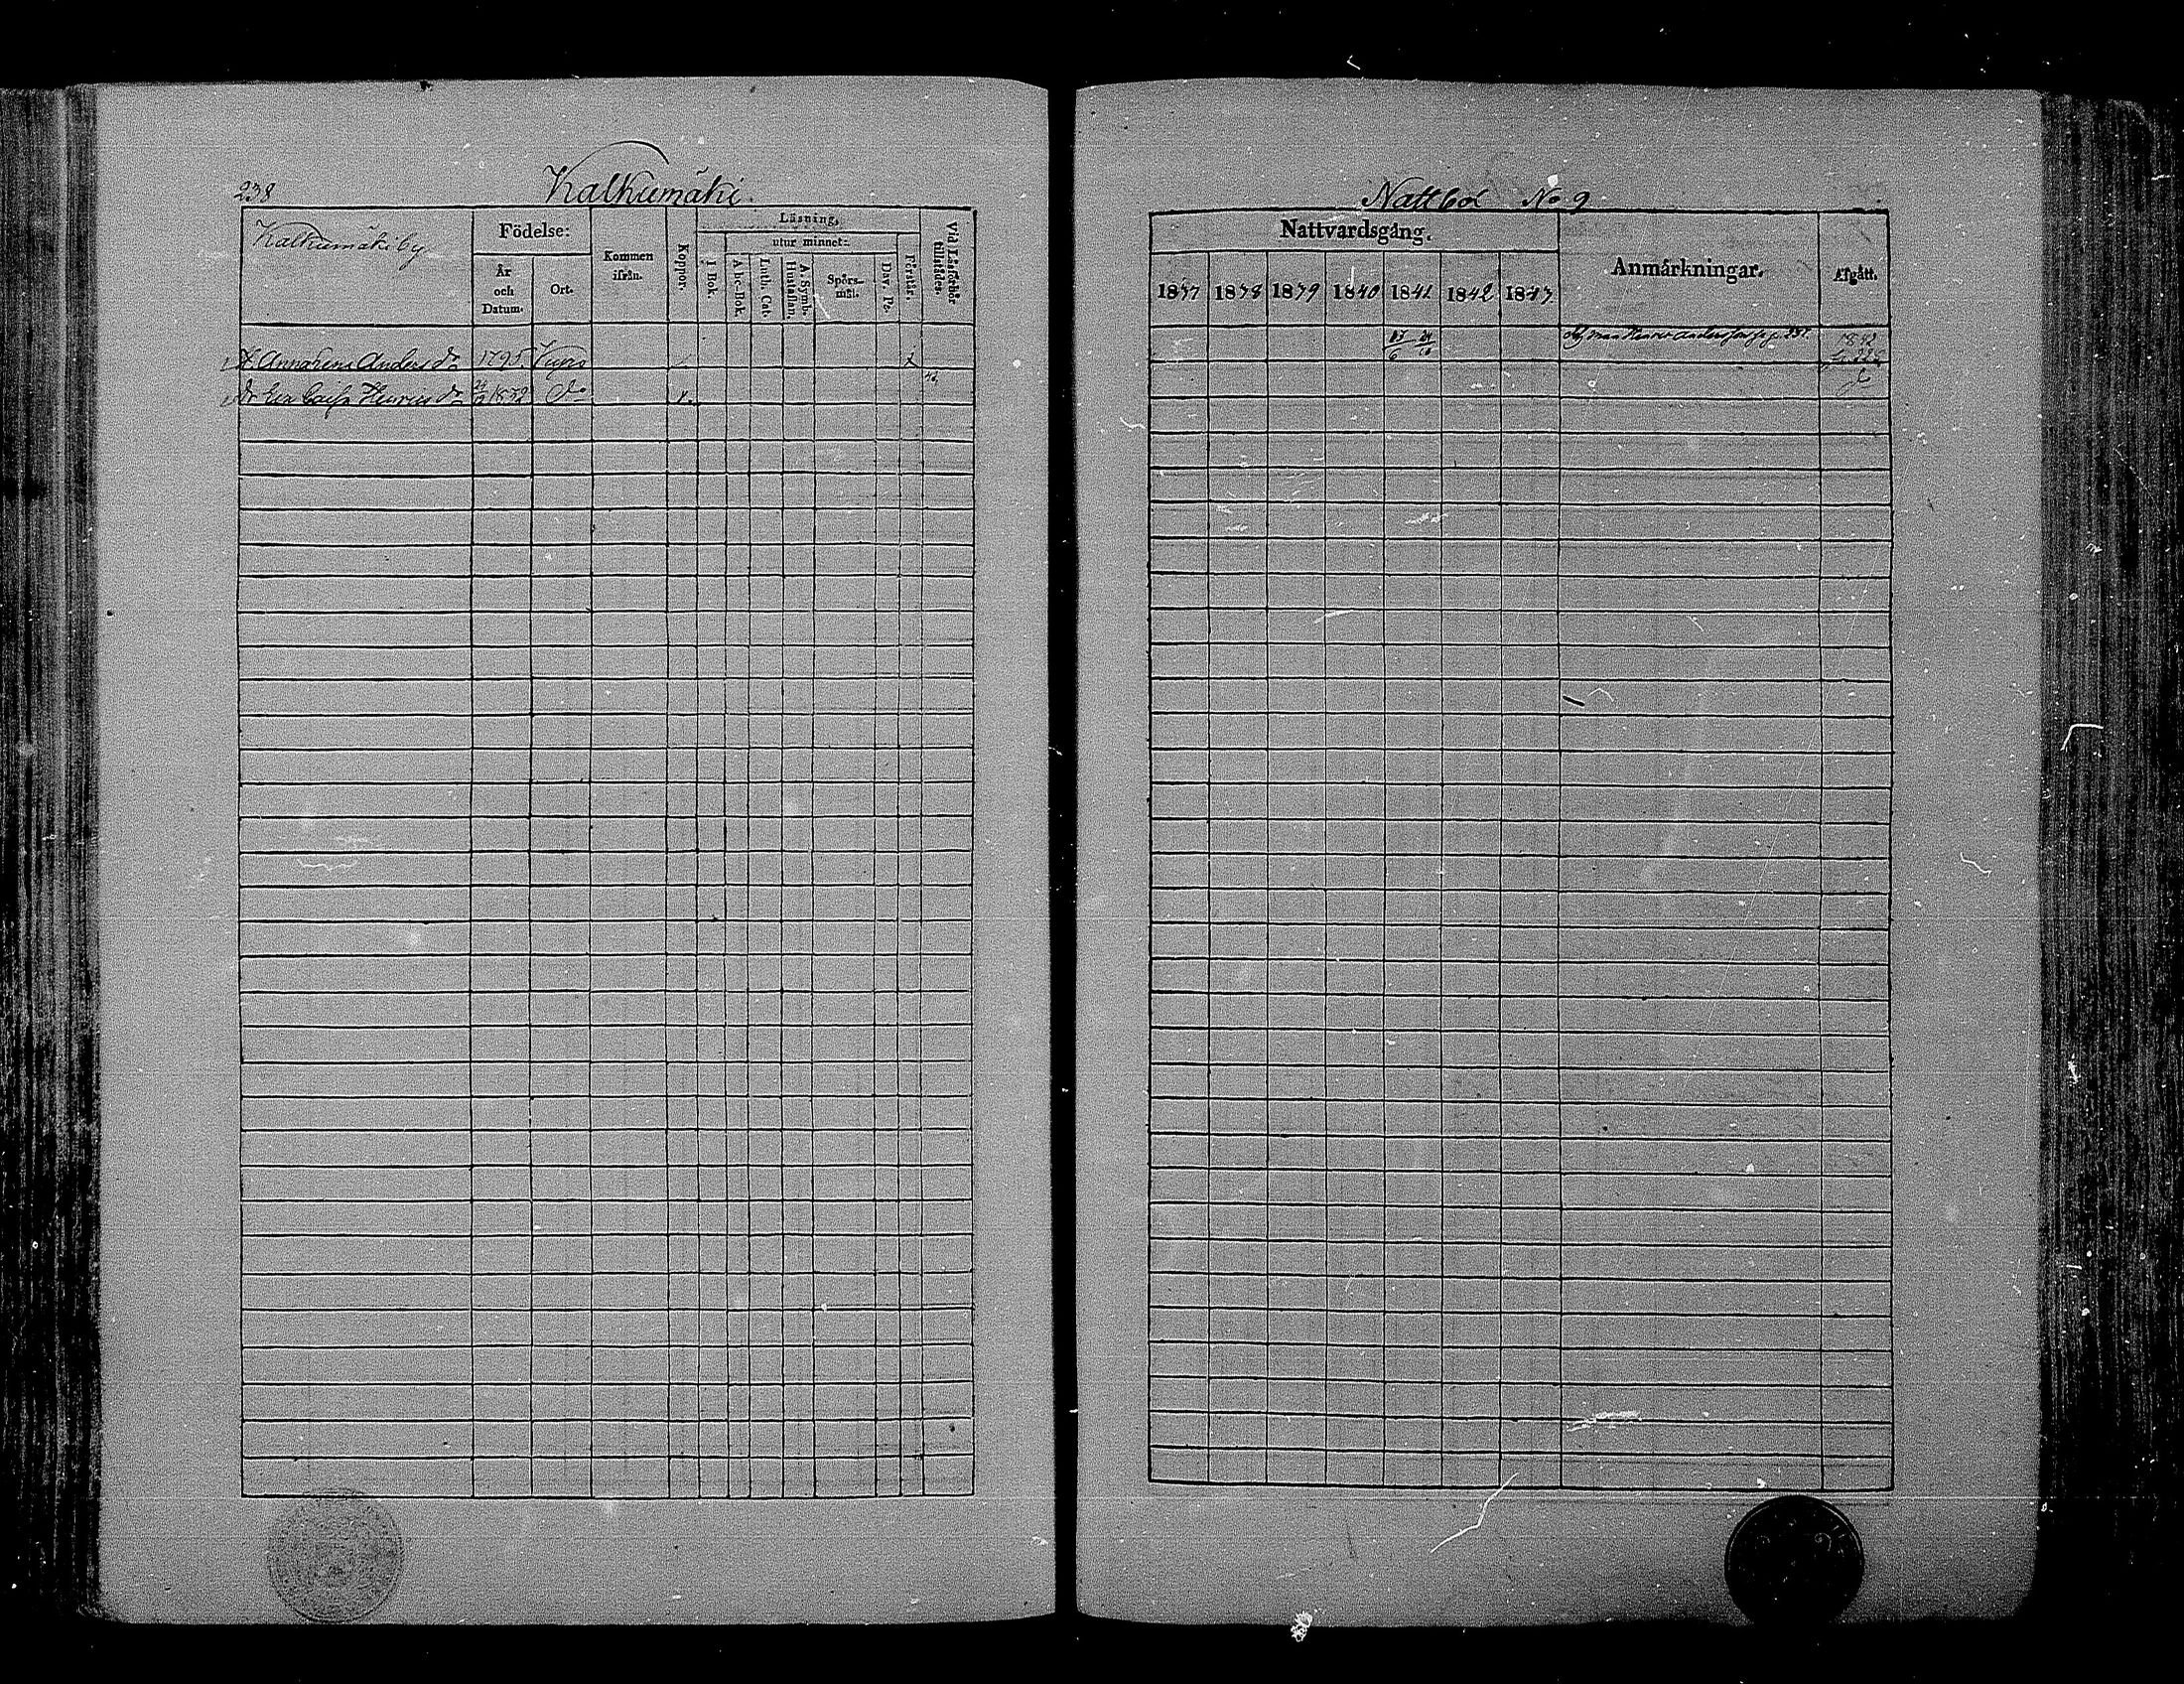 238
Kalkumäki.
Kalkumäki by
Födelse:
År
och
Datum.
Ort.
Kommen
ifrån.
Koppor.
Läsning,
I Bok.
utur minnet:
Abc-Bok.
Luth. Cat.
A. Symb.
Hustaflan.
Spörs-
mål.
Dav. Ps.
Förstår.
Vid Läseförhör
tillstädes.
Annahens Anders dr 1795
Dr Eva Caisa Henrics dr 1832 do
Nattbol No 9
Nattvardsgång.
1837 1838 1839 1840 1841 1842 1843
Anmärkningar.
Afgått.
1842